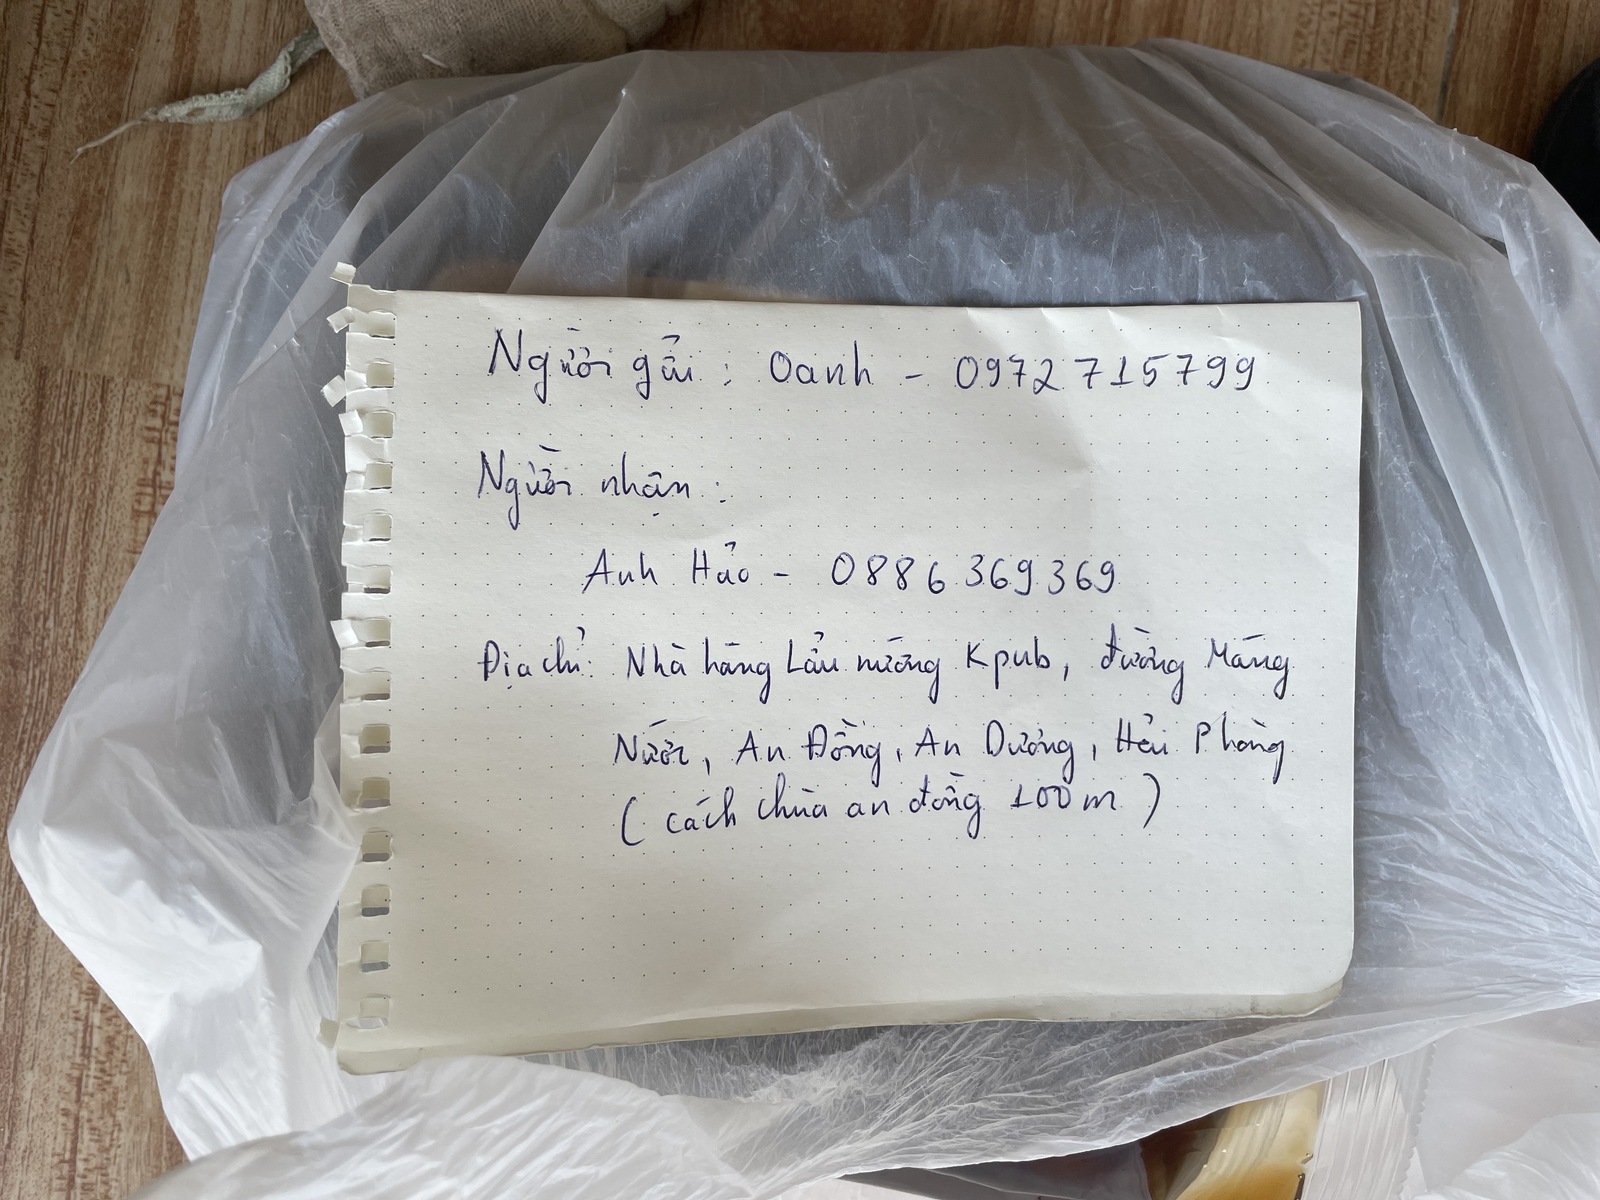 Người gửi : Oanh - 0972715799
Người nhận :
Anh Hảo - 0886369369
Địa chỉ: Nhà hàng Lẩu nướng Kpub, đường Máng
Nước, An Đồng, An Dương, Hải Phòng
( cách chùa an đồng 100m )